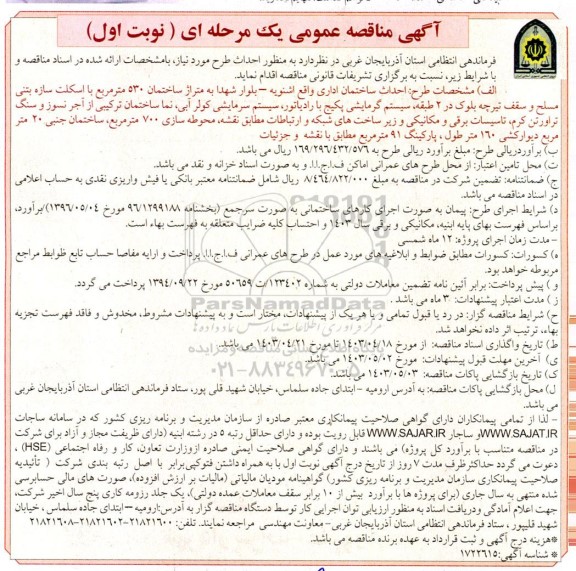 آگهی مناقصه عمومی یک مرحله ای ( نوبت اول)
فرماندهی انتظامی استان آذربایجان غربی در نظردارد به منظور احداث طرح مورد نیاز، بامشخصات ارائه شده در اسناد مناقصه و
با شرایط زیر، نسبت به برگزاری تشریفات قانونی مناقصه اقدام نماید.
الف) مشخصات طرح: احداث ساختمان اداری واقع اشنویه – بلوار شهدا به متراژ ساختمان ۵۳۰ مترمربع با اسکلت سازه بتنی
مسلح و سقف تیرچه بلوک در ۲ طبقه، سیستم گرمایشی پکیج با رادیاتور، سیستم سرمایشی کولر آبی، نما ساختمان ترکیبی از آجر نسوز و سنگ
تراورتن کرم، تاسیسات برقی و مکانیکی و زیر ساخت های شبکه و ارتباطات مطابق نقشه، محوطه سازی ۷۰۰ مترمربع، ساختمان جنبی ۲۰ متر
مربع دیوارکشی ۱۶۰ متر طول ، پارکینگ ۹۱ مترمربع مطابق با نقشه و جزئیات
ب) برآوردریالی طرح: مبلغ برآورد ریالی طرح به ۱۶۹/۲۹۶/۴۳۲/۵۷۶ ریال می باشد.
ت) محل تامین اعتبار: از محل طرح های عمرانی اماکن ف.ا.ج.ا.ا. و به صورت اسناد خزانه و نقد می باشد.
ج) ضمانتنامه: تضمین شرکت در مناقصه به مبلغ ۸/۴۶۴/۸۲۲/۰۰۰ ریال شامل ضمانتنامه معتبر بانکی یا فیش واریزی نقدی به حساب اعلامی
در اسناد مناقصه می باشد.
د) شرایط اجرای طرح: پیمان به صورت اجرای کارهای ساختمانی به صورت سرجمع (بخشنامه ۹۶/۱۲۹۹۱۸۸ مورخ ۱۳۹۶/۰۵/۰۴)/برآورد،
براساس فهرست بهای پایه ابنیه، مکانیکی و برقی سال ۱۴۰۳ و احتساب کلیه ضرایب متعلقه به فهرست بهاء است.
– مدت زمان اجرای پروژه: ۱۲ ماه شمسی
ه) کسورات: کسورات مطابق ضوابط و ابلاغیه های مورد عمل در طرح های عمرانی ف.ا.ج.ا.ا. پرداخت و ارایه مفاصا حساب تابع ظوابط مراجع
مربوطه خواهد بود.
و ) پیش پرداخت: برابر آئین نامه تضمین معاملات دولتی به شماره ۱۲۳۴۰۲/ت ۵۰۶۵۹ مورخ ۱۳۹۴/۰۹/۲۲ پرداخت می گردد.
ز ) مدت اعتبار پیشنهادات: ۳ ماه می باشد .
ح) شرایط مناقصه گزار: در رد یا قبول تمامی و یا هر یک از پیشنهادات، مختار است و به پیشنهادات مشروط، مخدوش و فاقد فهرست تجزیه
بهاء، ترتیب اثر داده نخواهد شد.
ط) تاریخ واگذاری اسناد مناقصه: از مورخ ۱۴۰۳/۰۴/۱۸ تا مورخ ۱۴۰۳/۰۴/۲۱ می باشد.
ی) آخرین مهلت قبول پیشنهادات: مورخ ۱۴۰۳/۰۵/۰۲ می باشد.
ک) تاریخ بازگشایی پاکات مناقصه: ۱۴۰۳/۰۵/۰۳ می باشد.
ل) محل بازگشایی پاکات مناقصه: به آدرس ارومیه – ابتدای جاده سلماس، خیابان شهید قلی پور، ستاد فرماندهی انتظامی استان آذربایجان غربی
می باشد.
– لذا از تمامی پیمانکاران دارای گواهی صلاحیت پیمانکاری معتبر صادره از سازمان مدیریت و برنامه ریزی کشور که در سامانه ساجات
WWW.SAJAT.IR و ساجار WWW.SAJAR.IR قابل رویت بوده و دارای حداقل رتبه ۵ در رشته ابنیه (دارای ظریفت مجاز و آزاد برای شرکت
در مناقصه متناسب با برآورد کل پروژه) می باشند و دارای گواهی صلاحیت ایمنی صادره ازوزارت تعاون، کار و رفاه اجتماعی (HSE) ،
دعوت می گردد حداکثر ظرف مدت ۷ روز از تاریخ درج آگهی نوبت اول با به همراه داشتن فتوکپی برابر با اصل رتبه بندی شرکت ( تأئیدیه
صلاحیت پیمانکاری سازمان مدیریت و برنامه ریزی کشور) گواهینامه مودیان مالیاتی (مالیات بر ارزش افزوده)، صورت های مالی حسابرسی
شده منتهی به سال جاری (برای پروژه ها با برآورد بیش از ۱۰ برابر سقف معاملات عمده دولتی)، یک جلد رزومه کاری پنج سال اخیر شرکت،
جهت اعلام آمادگی ودریافت اسناد به منظور ارزیابی توان اجرایی کار توسط دستگاه مناقصه گزار به آدرس:ارومیه – ابتدای جاده سلماس ، خیابان
شهید قلیپور ، ستاد فرماندهی انتظامی استان آذربایجان غربی– معاونت مهندسی مراجعه نمایند. تلفن: ۲۱۸۲۱۶۰۰–۲۱۸۲۱۶۰۲–۲۱۸۲۱۶۰۸
*هزینه درج آگهی و ثبت قرارداد به عهده برنده مناقصه می باشد.
* شناسه آگهی: ۱۷۲۲۶۱۵
ParsNamadData
۰۲۱-۸۸۳۴۹۶۷۰-۵